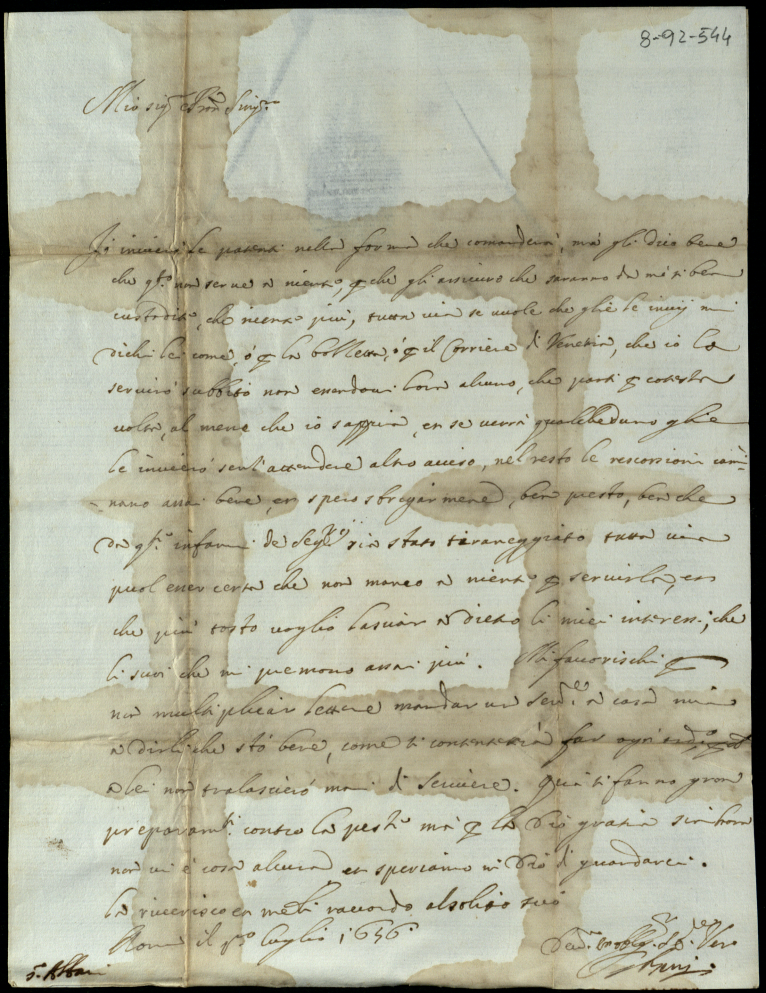 8-92-544
Mio sig.r e Pron Sing.mo
Gl'invierò le patenti nella forma che comanderà, mà gli dico bene
che q.to non serve a niente, e che gli assicuro che saranno da mè si ben
custodite, che niente più, tutta via se vuole che glie le invij mi
dichi lei come, ò p la bolletta, ò p il Corriere di Venetia, che io la
servirò subbito non essendovi hora alcuno, che parti p cotesta
volta, al meno che io sappia, et se verrà qualcheduno glie
le invierò senz'attendere altro aviso, nel resto le rescossioni cami-
nano assai bene, et spero sbrigarmene ben presto, ben che
da q.ti infami de sia stato tiraneggiato tutta via
puol esser certa che non manco a niente p servirla, et
che più tosto voglio lasciar a dietro li miei interessi, che
li suoi che mi premono assai più. Mi favorischi p
non multiplicar lettere mandar un ser.re a casa mia
a dirli che stò bene, come si contenterà far ogni
a lei non tralascierò mai di scrivere. Quà si fanno gran
preparam.ti contro la peste mà p la Dio gratia sin hora
non vi è cosa alcuna et speriamo in Dio di guardarci.
La riverisco et me li raccordo al solito suo
Roma il p.mo luglio 1656